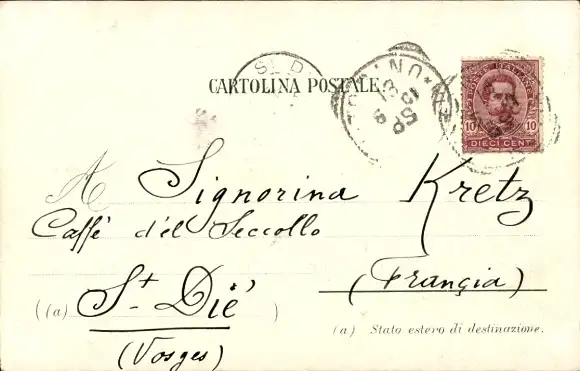 CARTOLINA POSTALE
TORINO
POSTE ITALIANE
10 10
DIECI CENT
A Signorina Kretz
Caffè d'el Seccollo
St Dié
(Françia)
((a) )
(Vosges)
(a) Stato estero di destinazione.